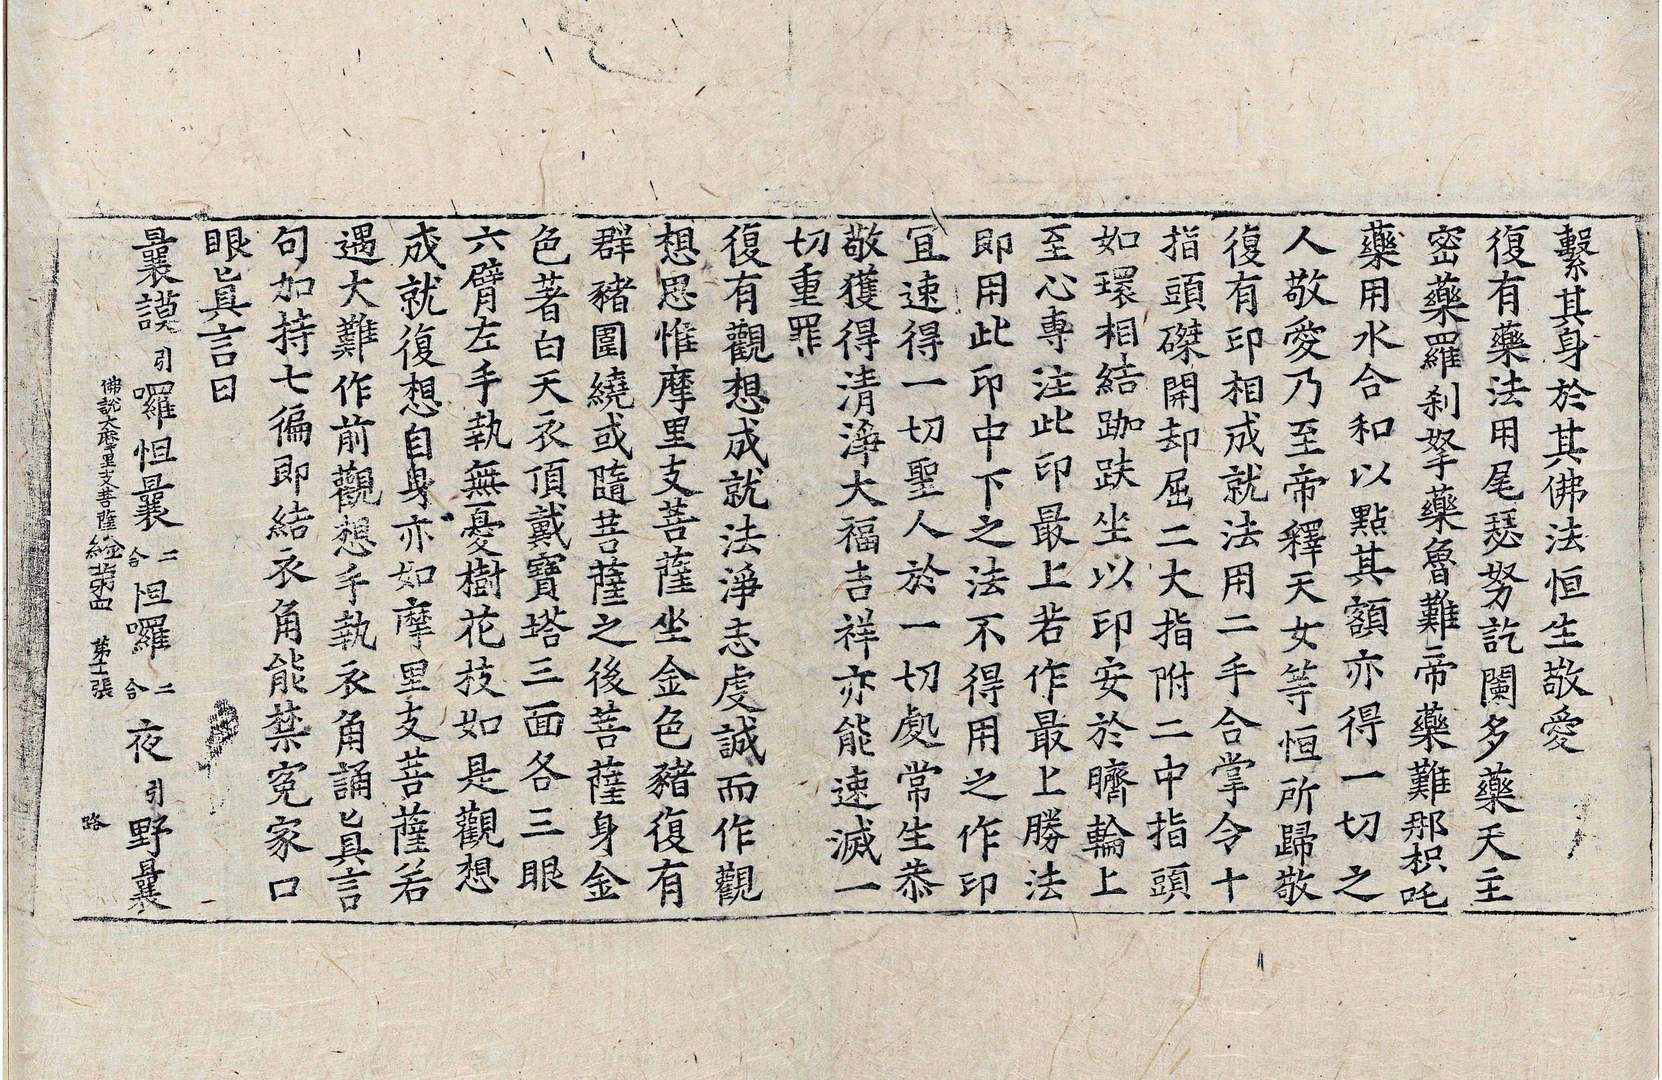 繫其身於其佛法恒生敬愛
復有藥法用尾瑟努訖闌多藥天主
密藥羅刹拏藥魯難帝藥難那枳吒
藥用水合和以點其額亦得一切之
人敬愛乃至帝釋天女等恒所歸敬
復有印相成就法用二手合掌令十
指頭磔開却屈二大指附二中指頭
如環相結跏趺坐以印安於臍輪上
至心專注此印最上若作最上勝法
即用此印中下之法不得用之作印
冝速得一切聖人於一切處常生恭
敬獲得清淨大福吉祥亦能速滅一
切重罪
復有觀想成就法淨志虔誠而作觀
想思惟摩里支菩薩坐金色豬復有
群豬圍繞或隨菩薩之後菩薩身金
色著白天衣頂戴寶塔三面各三眼
六臂左手執無憂樹花枝如是觀想
成就復想自身亦如摩里支菩薩若
遇大難作前觀想手執衣角誦真言
句加持七徧即結衣角能禁寃家口
眼真言曰
曩謨引囉怛曩二合怛囉二合夜引野曩
佛說大摩里支菩薩經苐四 第十張 路